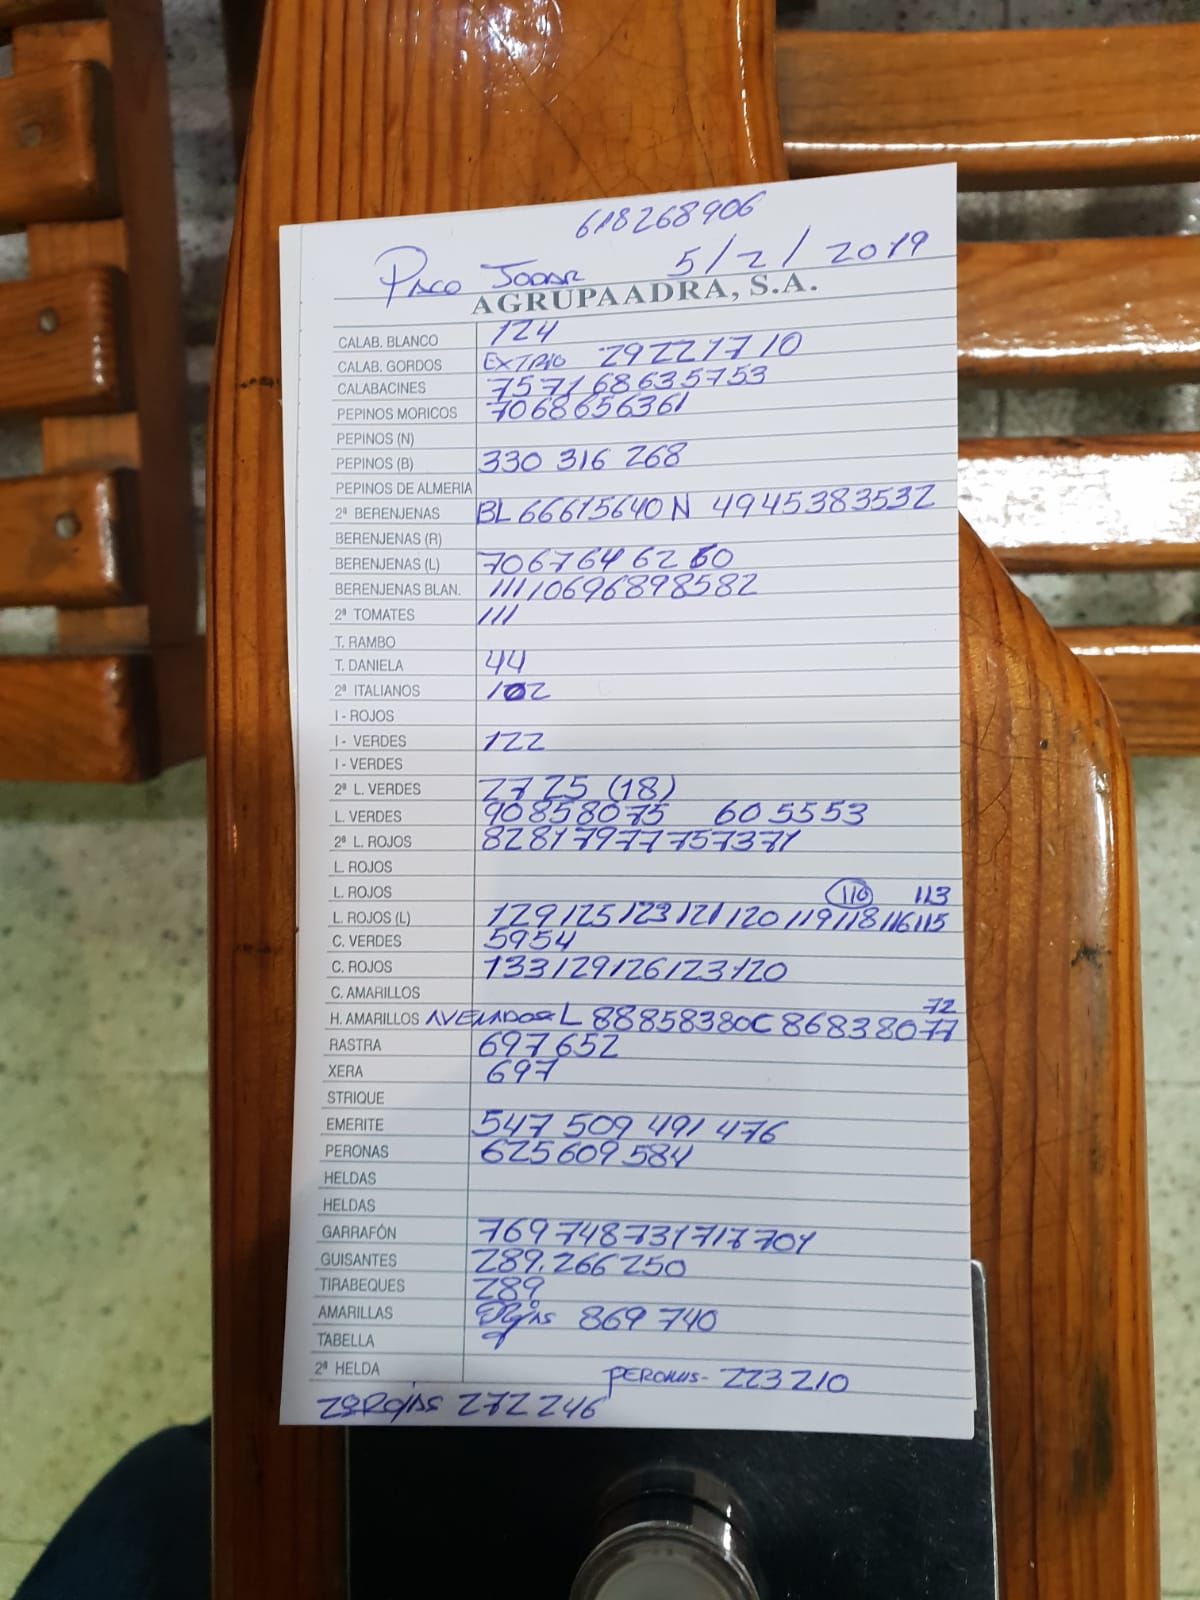 618268906
Paco Jodar 5/2/2019
AGRUPAADRA, S.A.
CALAB. BLANCO 124
CALAB. GORDOS EXTRIO 29221710
CALABACINES 757168635753
PEPINOS MORICOS 7068656361
PEPINOS (N)
PEPINOS (B) 330 316 268
PEPINOS DE ALMERIA
2ª BERENJENAS BL 66615640 N 4945383532
BERENJENAS (R)
BERENJENAS (L) 7067646260
BERENJENAS BLAN. 111106968985 82
2ª TOMATES 111
T. RAMBO
T. DANIELA 44
2ª ITALIANOS 102
I - ROJOS
I - VERDES 122
I - VERDES
2ª L. VERDES 2725 (18)
L. VERDES 90858075 605553
2ª L. ROJOS 82817977757371
L. ROJOS
L. ROJOS 110 113
L. ROJOS (L) 129 125 123 121 120 119 118 116 115
C. VERDES 5954
C. ROJOS 133 129 126 123 120
C. AMARILLOS
72
H. AMARILLOS L 88858380 C 86838077
RASTRA 697 652
XERA 697
STRIQUE
EMERITE 547 509 491 476
PERONAS 625 609 584
HELDAS
HELDAS
GARRAFÓN 769 748 731 717 701
GUISANTES 289.266 250
TIRABEQUES 289
AMARILLAS 869 740
TABELLA
2ª HELDA PERONAS- 223 210
272 246